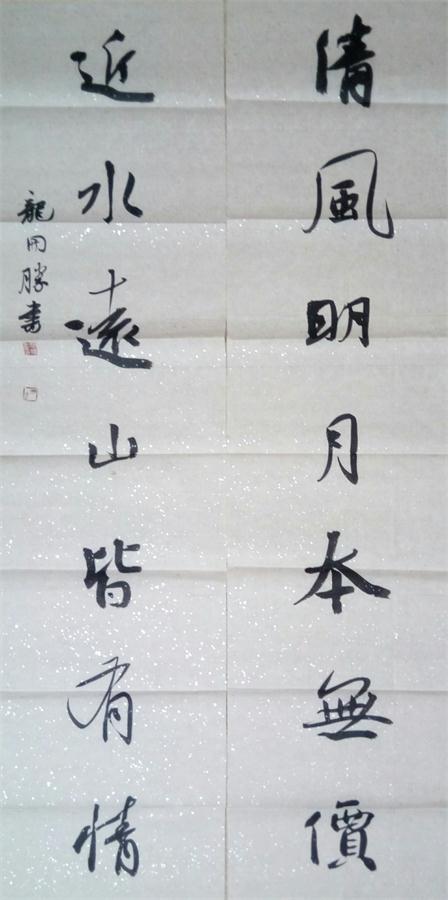 清風明月本無價
近水遠山皆有情
龍用勝書